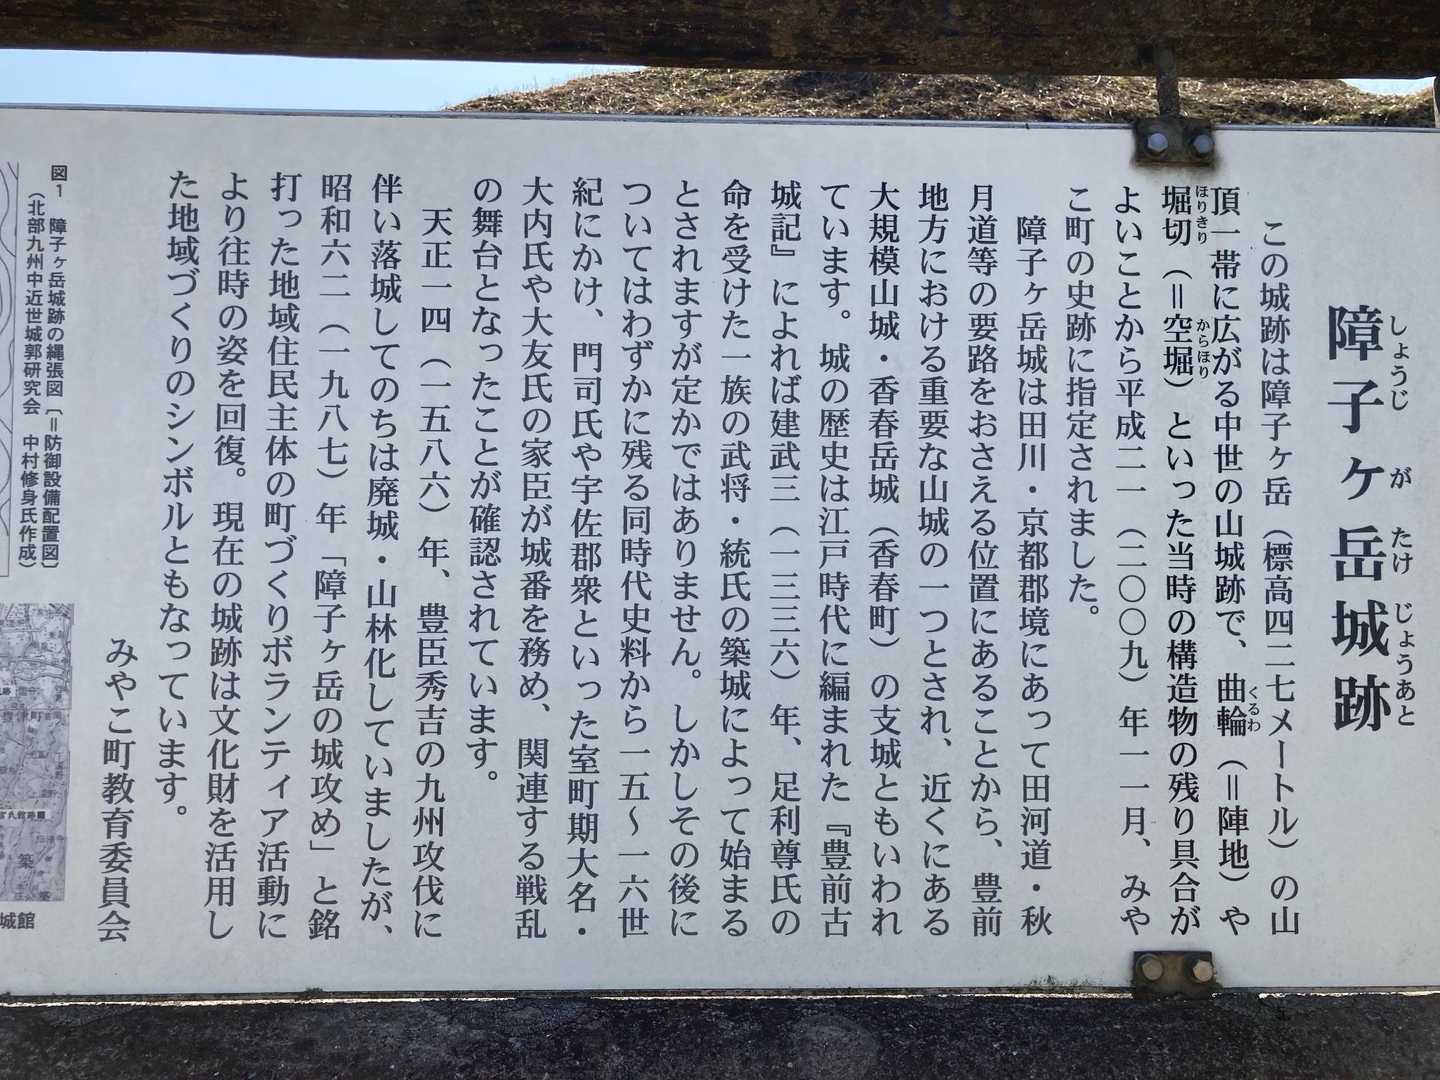 障子ヶ岳城跡
しょうじ が たけ じょうあと
この城跡は障子ヶ岳（標高四二七メートル）の山
頂一帯に広がる中世の山城跡で、曲輪（＝陣地）や
くるわ
堀切（＝空堀）といった当時の構造物の残り具合が
ほりきり からほり
よいことから平成二一（二〇〇九）年一一月、みや
こ町の史跡に指定されました。
障子ヶ岳城は田川・京都郡境にあって田河道・秋
月道等の要路をおさえる位置にあることから、豊前
地方における重要な山城の一つとされ、近くにある
大規模山城・香春岳城（香春町）の支城ともいわれ
ています。城の歴史は江戸時代に編まれた『豊前古
城記』によれば建武三（一三三六）年、足利尊氏の
命を受けた一族の武将・統氏の築城によって始まる
とされますが定かではありません。しかしその後に
ついてはわずかに残る同時代史料から一五～一六世
紀にかけ、門司氏や宇佐郡衆といった室町期大名・
大内氏や大友氏の家臣が城番を務め、関連する戦乱
の舞台となったことが確認されています。
天正一四（一五八六）年、豊臣秀吉の九州攻伐に
伴い落城してのちは廃城・山林化していましたが、
昭和六二（一九八七）年「障子ヶ岳の城攻め」と銘
打った地域住民主体の町づくりボランティア活動に
より往時の姿を回復。現在の城跡は文化財を活用し
た地域づくりのシンボルともなっています。
みやこ町教育委員会
図1 障子ヶ岳城跡の縄張図〔＝防御設備配置図〕
（北部九州中近世城郭研究会 中村修身氏作成）
城館